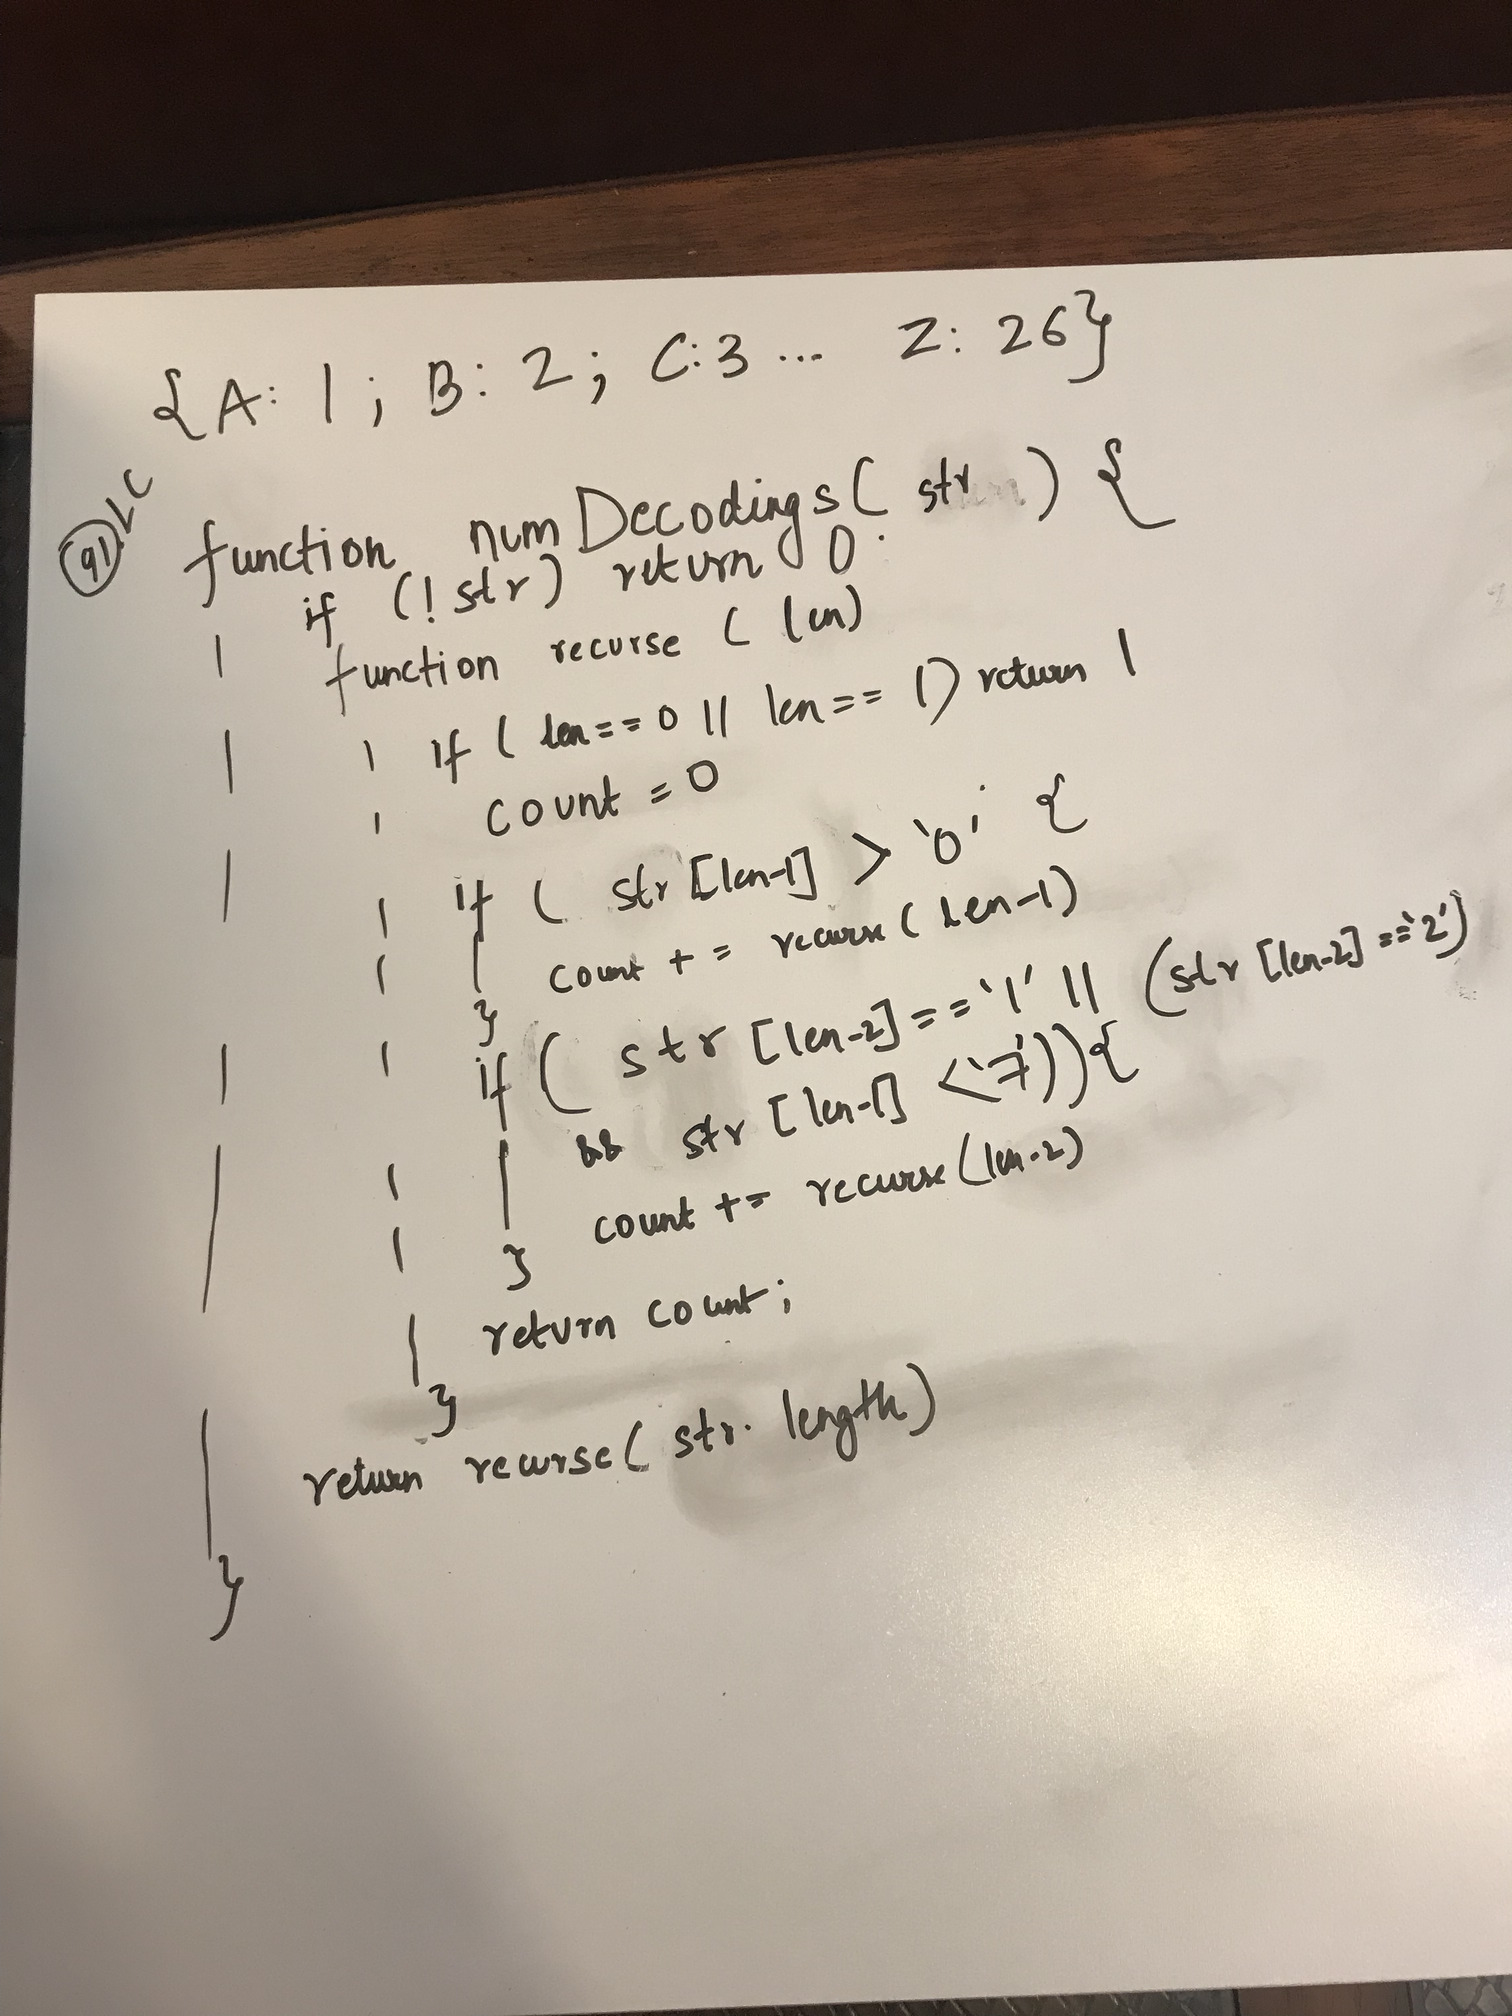 {A: 1 ; B: 2 ; C: 3 ... Z: 26}
91. LC
function numDecodings( str ) {
if (! str) return 0
function recurse ( len)
if ( len == 0 || len == 1) return 1
count = 0
if ( str [len-1] > '0' {
count + = recurse ( len-1)
}
if ( str [len-2] == '1' || (str [len-2] == '2')
&& str [len-1] < '7')) {
count += recurse (len-2)
}
return count;
}
return recurse( str. length)
}